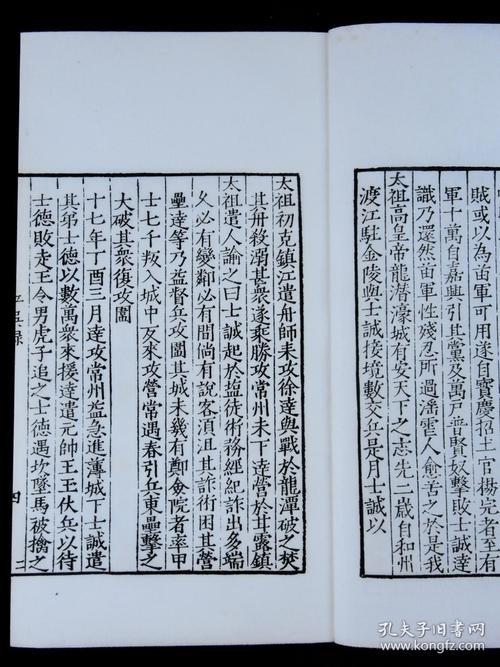 我以為苗軍可用遂自寶慶招土官楊完者至有
軍十萬自嘉興引其黨及萬戶普賢奴擊敗士誠達
識乃還然苗軍性殘忍所過滛虐人愈苦之於是我
太祖高皇帝龍潛濠城有安天下之志先二歲自和州
渡江駐金陵與士誠接境數交兵是月士誠以
太祖初克鎮江遣舟師来攻徐達與戰於龍潭破之焚
其舟殺溺其衆遂乘勝攻常州未下達營於甘露鎮
太祖遣人諭之曰士誠起於塩徒術務經紀詐出多端
乆必有變鄰必有間倘有説客湏沮其詐術困其營
壘達等乃益督兵攻圍其城未幾有鄭僉院者率甲
士七千叛入城中反来攻營常遇春引兵東壘擊之
大破其衆復攻圍
十七年丁酉三月達攻常州益急進薄城下士誠遣
其弟士德以數萬衆來援達遣元帥王玉伏兵以待
士德敗走王令男虎子追之士德遇坎墜馬被擒之
四
二
孔夫子旧书网
www.kongfz.com